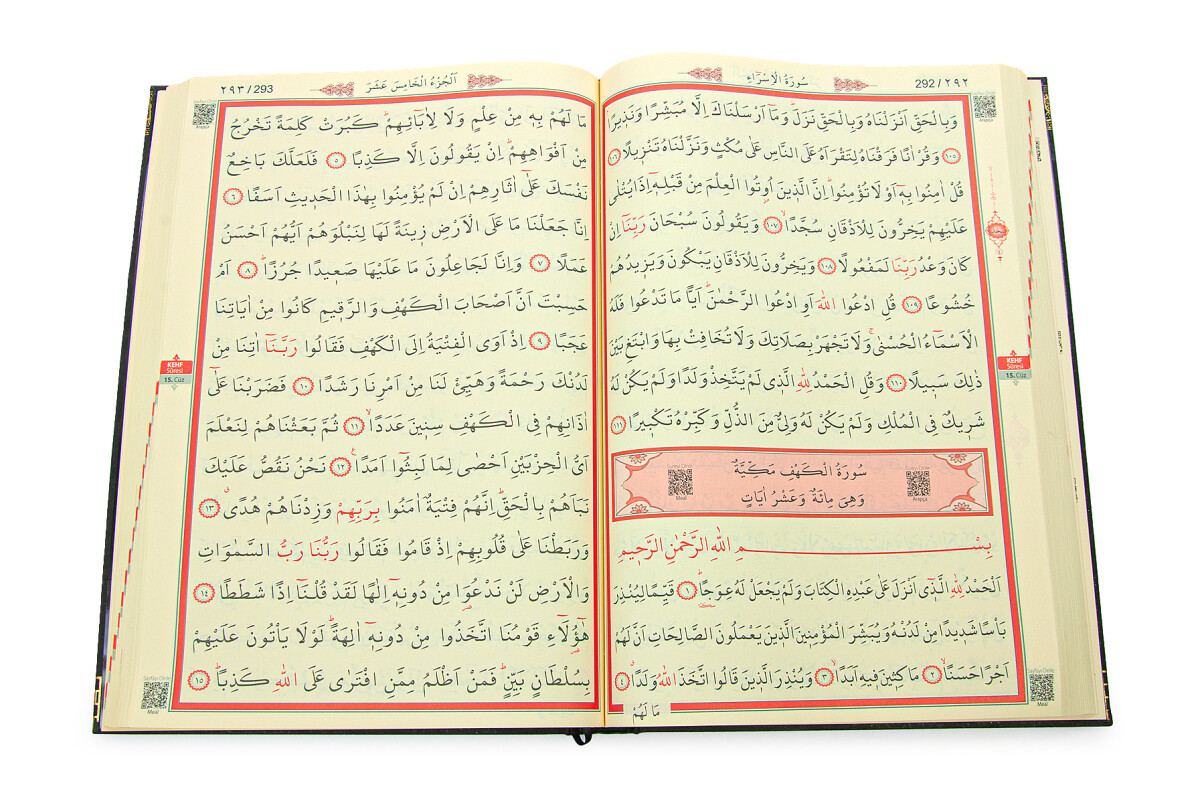 292/٢٩٢
سُورَةُ الْاِسْرَاءِ
وَبِالْحَقِّ اَنْزَلْنَاهُ وَبِالْحَقِّ نَزَلَۜ وَمَٓا اَرْسَلْنَاكَ اِلَّا مُبَشِّرًا وَنَذ۪يرًا
﴿١٠٥﴾ وَقُرْاٰنًا فَرَقْنَاهُ لِتَقْرَاَهُ عَلَى النَّاسِ عَلٰى مُكْثٍ وَنَزَّلْنَاهُ تَنْز۪يلًا ﴿١٠٦﴾
قُلْ اٰمِنُوا بِه۪ٓ اَوْ لَا تُؤْمِنُواۜ اِنَّ الَّذ۪ينَ اُو۫تُوا الْعِلْمَ مِنْ قَبْلِه۪ٓ اِذَا يُتْلٰى
عَلَيْهِمْ يَخِرُّونَ لِلْاَذْقَانِ سُجَّدًاۙ ﴿١٠٧﴾ وَيَقُولُونَ سُبْحَانَ رَبِّنَٓا اِنْ
كَانَ وَعْدُ رَبِّنَا لَمَفْعُولًا ﴿١٠٨﴾ وَيَخِرُّونَ لِلْاَذْقَانِ يَبْكُونَ وَيَز۪يدُهُمْ
خُشُوعًا ﴿١٠٩﴾ قُلِ ادْعُوا اللّٰهَ اَوِ ادْعُوا الرَّحْمٰنَۜ اَيًّا مَا تَدْعُوا فَلَهُ
الْاَسْمَٓاءُ الْحُسْنٰىۚ وَلَا تَجْهَرْ بِصَلَاتِكَ وَلَا تُخَافِتْ بِهَا وَابْتَغِ بَيْنَ
ذٰلِكَ سَب۪يلًا ﴿١١٠﴾ وَقُلِ الْحَمْدُ لِلّٰهِ الَّذ۪ي لَمْ يَتَّخِذْ وَلَدًا وَلَمْ يَكُنْ لَهُ
شَر۪يكٌ فِي الْمُلْكِ وَلَمْ يَكُنْ لَهُ وَلِيٌّ مِنَ الذُّلِّ وَكَبِّرْهُ تَكْب۪يرًا ﴿١١١﴾
سُورَةُ الْكَهْفِ مَكِّيَّةٌ
وَهِيَ مِائَةٌ وَعَشْرُ اٰيَاتٍ
Meal
Arapça
بِسْمِ اللّٰهِ الرَّحْمٰنِ الرَّح۪يمِ
اَلْحَمْدُ لِلّٰهِ الَّذ۪ٓي اَنْزَلَ عَلٰى عَبْدِهِ الْكِتَابَ وَلَمْ يَجْعَلْ لَهُ عِوَجًاۜ ﴿١﴾ قَيِّمًا لِيُنْذِرَ
بَأْسًا شَد۪يدًا مِنْ لَدُنْهُ وَيُبَشِّرَ الْمُؤْمِن۪ينَ الَّذ۪ينَ يَعْمَلُونَ الصَّالِحَاتِ اَنَّ لَهُمْ
اَجْرًا حَسَنًاۙ ﴿٢﴾ مَاكِث۪ينَ ف۪يهِ اَبَدًاۙ ﴿٣﴾ وَيُنْذِرَ الَّذ۪ينَ قَالُوا اتَّخَذَ اللّٰهُ وَلَدًاۗ ﴿٤﴾
مَا لَهُمْ
Arapça
KEHF
Sûresi
15. Cüz
Sayfayı Dinle
Meal
اَلْجُزْءُ الْخَامِسَ عَشَرَ
٢٩٣/293
مَا لَهُمْ بِه۪ مِنْ عِلْمٍ وَلَا لِاٰبَٓائِهِمْۜ كَبُرَتْ كَلِمَةً تَخْرُجُ
مِنْ اَفْوَاهِهِمْۜ اِنْ يَقُولُونَ اِلَّا كَذِبًا ﴿٥﴾ فَلَعَلَّكَ بَاخِعٌ
نَفْسَكَ عَلٰٓى اٰثَارِهِمْ اِنْ لَمْ يُؤْمِنُوا بِهٰذَا الْحَد۪يثِ اَسَفًا ﴿٦﴾
اِنَّا جَعَلْنَا مَا عَلَى الْاَرْضِ ز۪ينَةً لَهَا لِنَبْلُوَهُمْ اَيُّهُمْ اَحْسَنُ
عَمَلًا ﴿٧﴾ وَاِنَّا لَجَاعِلُونَ مَا عَلَيْهَا صَع۪يدًا جُرُزًاۜ ﴿٨﴾ اَمْ
حَسِبْتَ اَنَّ اَصْحَابَ الْكَهْفِ وَالرَّق۪يمِ كَانُوا مِنْ اٰيَاتِنَا
عَجَبًا ﴿٩﴾ اِذْ اَوَى الْفِتْيَةُ اِلَى الْكَهْفِ فَقَالُوا رَبَّنَٓا اٰتِنَا مِنْ
لَدُنْكَ رَحْمَةً وَهَيِّئْ لَنَا مِنْ اَمْرِنَا رَشَدًا ﴿١٠﴾ فَضَرَبْنَا عَلٰٓى
اٰذَانِهِمْ فِي الْكَهْفِ سِن۪ينَ عَدَدًاۙ ﴿١١﴾ ثُمَّ بَعَثْنَاهُمْ لِنَعْلَمَ
اَيُّ الْحِزْبَيْنِ اَحْصٰى لِمَا لَبِثُٓوا اَمَدًا۟ ﴿١٢﴾ نَحْنُ نَقُصُّ عَلَيْكَ
نَبَاَهُمْ بِالْحَقِّۜ اِنَّهُمْ فِتْيَةٌ اٰمَنُوا بِرَبِّهِمْ وَزِدْنَاهُمْ هُدًىۗ ﴿١٣﴾
وَرَبَطْنَا عَلٰى قُلُوبِهِمْ اِذْ قَامُوا فَقَالُوا رَبُّنَا رَبُّ السَّمٰوَاتِ
وَالْاَرْضِ لَنْ نَدْعُوَ۬ا مِنْ دُونِه۪ٓ اِلٰهًا لَقَدْ قُلْنَٓا اِذًا شَطَطًا ﴿١٤﴾
هٰٓؤُ۬لَٓاءِ قَوْمُنَا اتَّخَذُوا مِنْ دُونِه۪ٓ اٰلِهَةًۜ لَوْلَا يَأْتُونَ عَلَيْهِمْ
بِسُلْطَانٍ بَيِّنٍۜ فَمَنْ اَظْلَمُ مِمَّنِ افْتَرٰى عَلَى اللّٰهِ كَذِبًاۜ ﴿١٥﴾
Arapça
KEHF
Sûresi
15. Cüz
Sayfayı Dinle
Meal